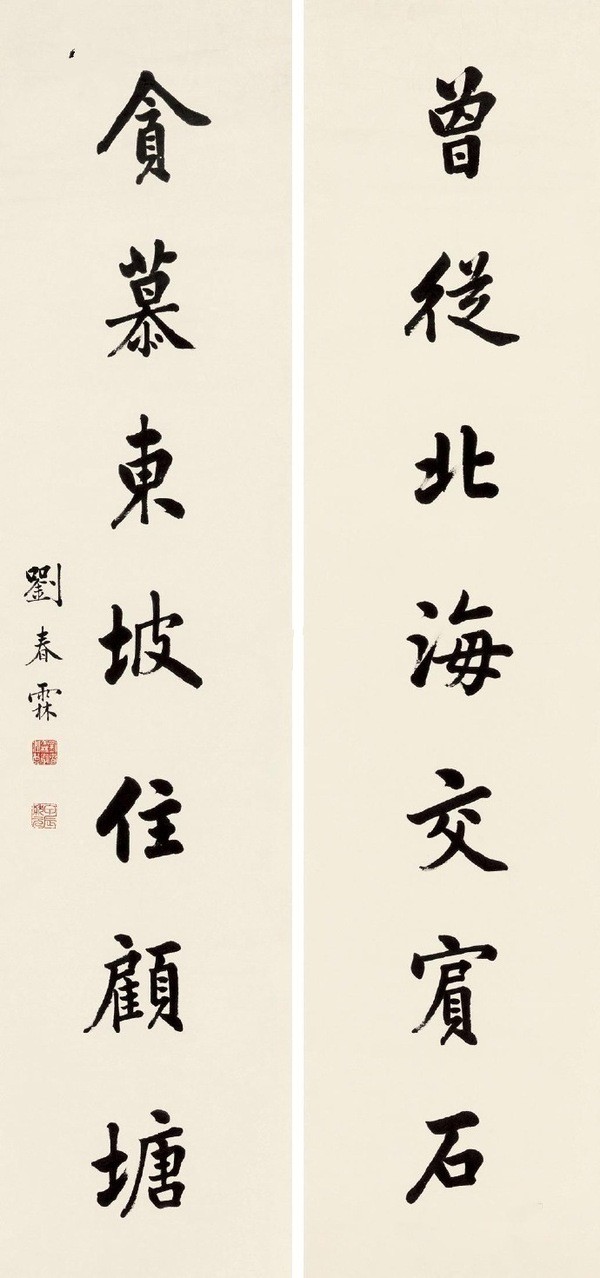 曾從北海交賓石
貪慕東坡住顧塘
劉春霖